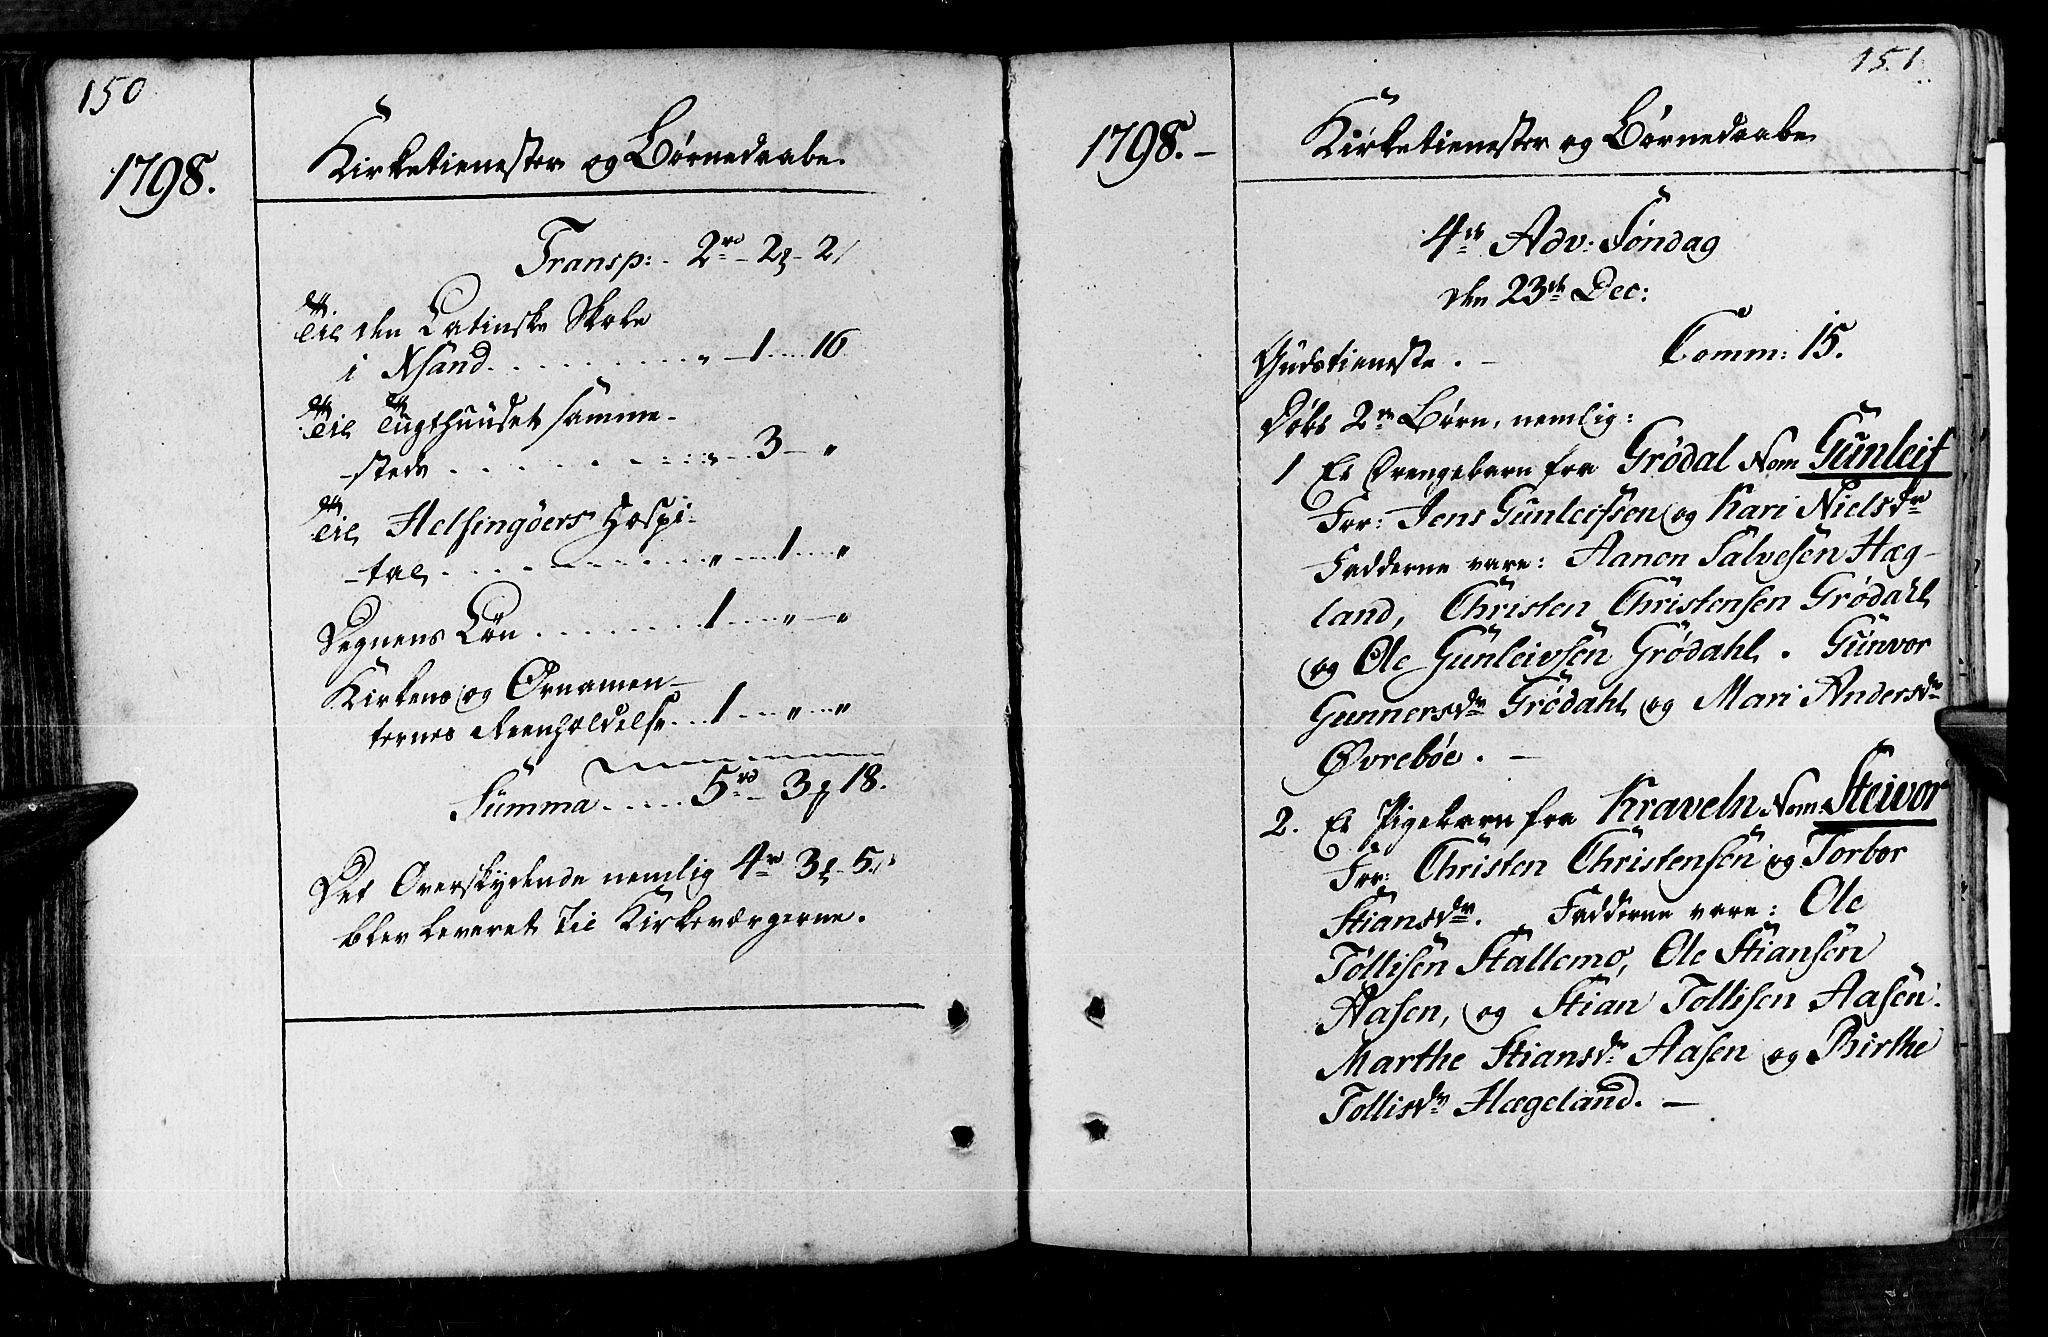 150
1798.
Kirketienester og Børnedaabe.
Transp: - 2rd - 2 - 2
Til den Latinske Skole
i Xsand. . . . . . . . . " - 1 . . . 16
Til Tugthuuset samme-
-steds . . . . . . . . . " . . . 3 - "
Til Helsingøers Hospi-
-tal . . . . . . . . . . " - 1 . . . "
Degnens Løn . . . . . . . 1 . . . " - "
Kirkens og Ornamen-
ternes Reenholdelse . . . 1 . . . " . . . "
Summa . . . . . 5rd - 3 18.
Det Overskydende nemlig 4r 3 - 5
blev leveret til Kirkeværgerne.
151
1798. -
Kirketienester og Børnedaabe
4de Adv: Søndag
den 23de Dec:
Gudstieneste. - Comm: 15.
Døbt 2de Børn, nemlig:
1 Et Drengebarn fra Grødal Nom Gunleif
For: Jens Gunleifssen og Kari Nielsdr
Fadderne vare: Aanen Salvesen Hæg-
land, Christen Christensen Grødahl
og Ole Gunleivsen Grødahl. Gunvor
Gunnersdr Grødahl og Mari Andersdr
Øvrebøe. -
2. Et Pigebarn fra Kraveln Nom: Steivor
For: Christen Christensen og Torbor
Stiansdr. Fadderne vare: Ole
Tollisen Stallemo, Ole Stiansen
Aasen, og Stian Tollisen Aasen.
Marthe Stiansdr Aasen og Birthe
Tollisdr Hægeland. -